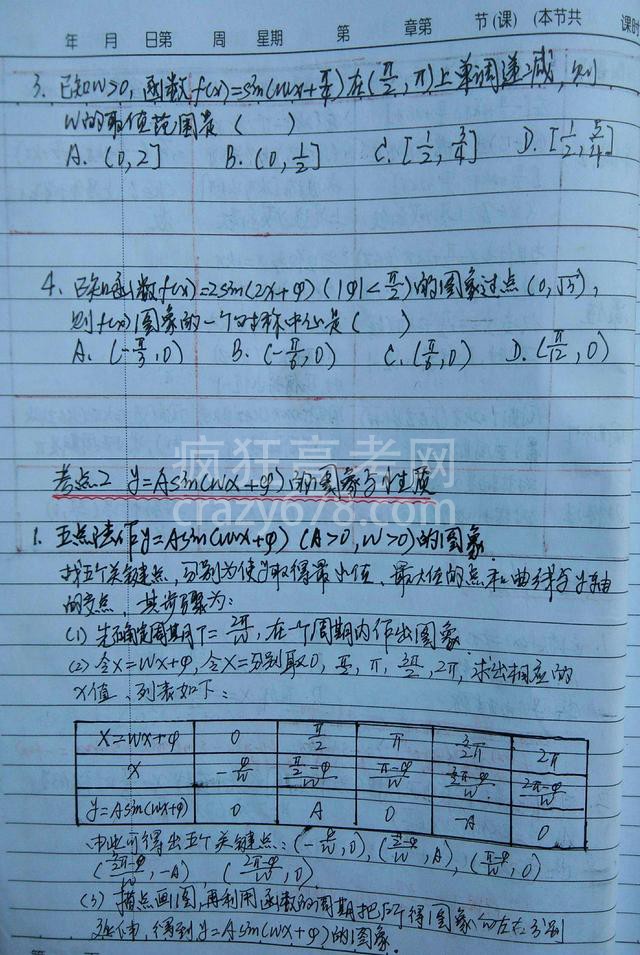 年 月 日第 周 星期 第 章第 节(课) (本节共 课时
3. 已知w>0, 函数f(x)=sin(wx+π/4)在(π/2, π)上单调递减, 则
w的取值范围是 ( )
A. (0,2] B. (0, 1/2] C. [1/2, 3/4] D. [1/2, 5/4]
4. 已知函数f(x)=2sin(2x+φ) (|φ|<π/2)的图象过点(0, √3),
则f(x)图象的一个对称中心是 ( )
A. (-π/3, 0) B. (-π/6, 0) C. (π/6, 0) D. (π/12, 0)
疯狂高考网
考点2 y=Asin(wx+φ)的图象与性质
crazy678.com
1. 五点法作y=Asin(wx+φ) (A>0, w>0)的图象
找五个关键点, 分别为使y取得最小值、最大值的点和曲线与y轴
的交点, 其步骤为:
(1) 先确定周期T=2π/w, 在一个周期内作出图象
(2) 令X=wx+φ, 令X=分别取0, π/2, π, 3π/2, 2π, 求出相应的
x值、列表如下:
X=wx+φ 0 π/2 π 3/2π 2π
x -φ/w (π/2-φ)/w (π-φ)/w (3/2π-φ)/w (2π-φ)/w
y=Asin(wx+φ) 0 A 0 -A 0
由此可得出五个关键点: (-φ/w, 0), ((π/2-φ)/w, A), ((π-φ)/w, 0)
((3/2π-φ)/w, -A) ((2π-φ)/w, 0)
(3) 描点画图, 再利用函数的周期把所得图象向左右分别
延伸, 得到y=Asin(wx+φ)的图象.